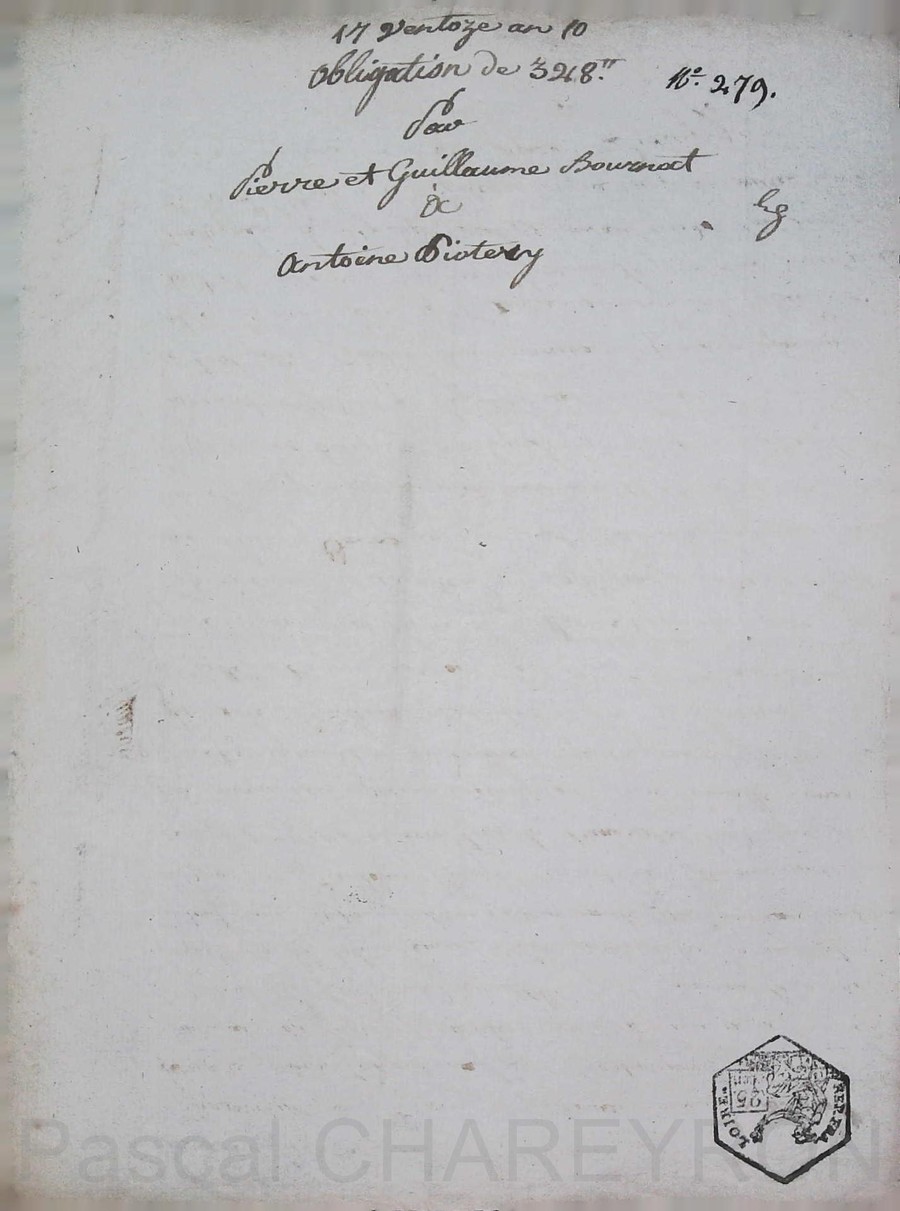 17 Ventoze an 10
obligation de 328.tt
N.o 279.
Par
Pierre et Guillaume Bournat
à
Antoine Piotery
LOIRE
REP. FRA
25
Pascal CHAREYRON